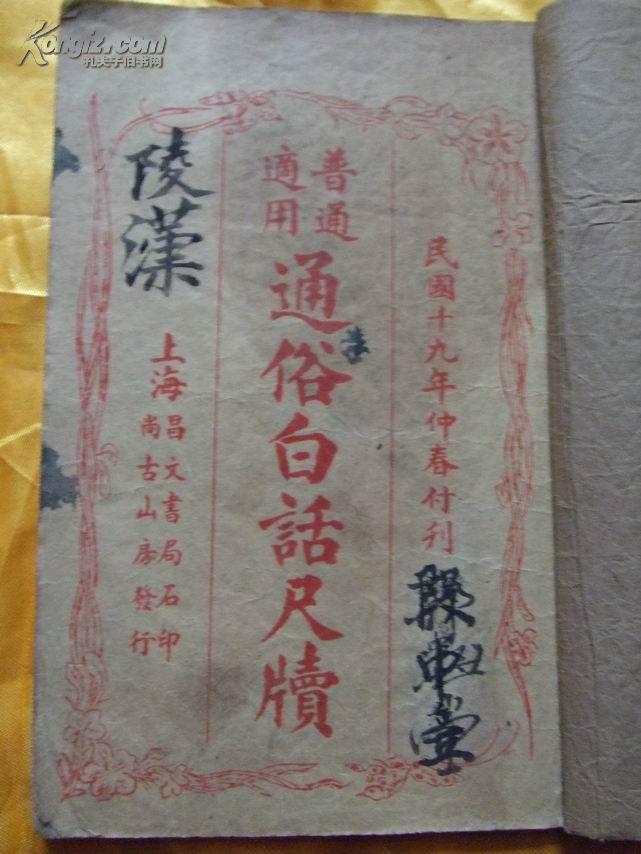 民國十九年仲春付刊
普通
適用
通俗白話尺牘
上海昌文書局石印
尚古山房發行
陵漢
Kongfz.com
孔夫子旧书网